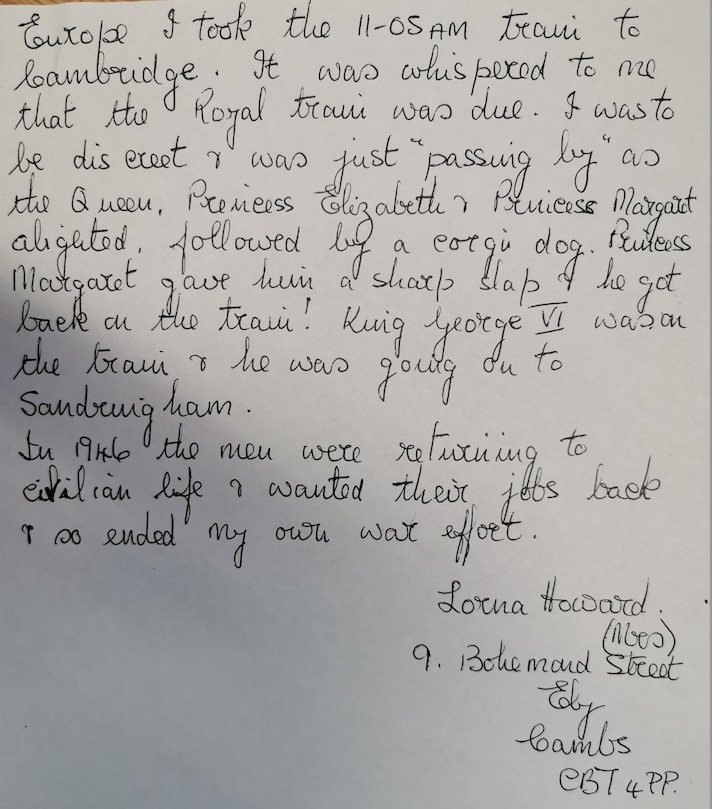 Europe I took the 11-05 AM train to
Cambridge. It was whispered to me
that the Royal train was due. I was to
be discreet & was just "passing by" as
the Queen, Princess Elizabeth & Princess Margaret
alighted, followed by a corgi dog. Princess
Margaret gave him a sharp slap & he got
back on the train! King George VI was on
the train & he was going on to
Sandringham.
In 1946 the men were returning to
civilian life & wanted their jobs back
& so ended my own war effort.
Lorna Howard.
(Mrs)
9. Bohemond Street
Ely
Cambs
CB7 4PP.